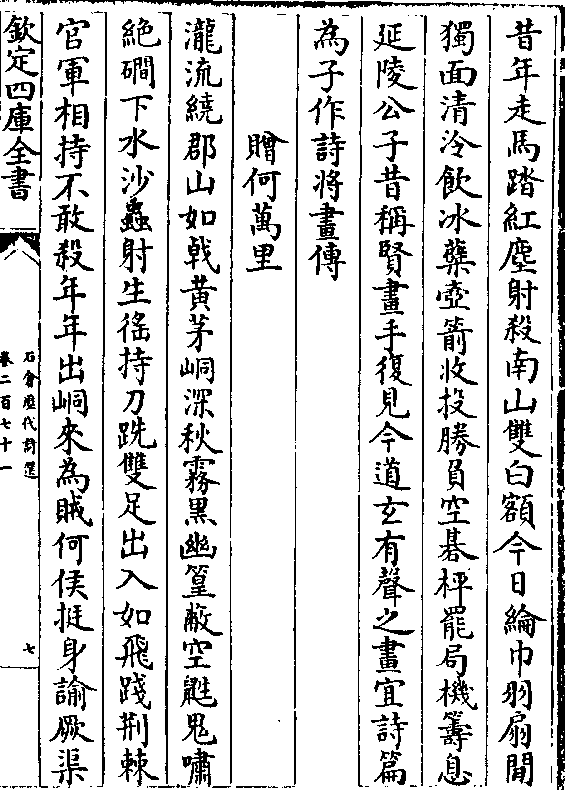 昔年走馬踏紅塵射殺南山雙白額今日綸巾羽扇閒
獨面清泠飲冰蘗壺箭收投勝負空棊枰罷局機籌息
延陵公子昔稱賢畫手復見今道玄有聲之畫宜詩篇
為子作詩將畫傳
贈何萬里
瀧流繞郡山如㦸黄茅峒深秋霧黒幽篁蔽空鼪鬼嘯
絶磵下水沙蟲射生徭持刀跣雙足出入如飛踐荆棘
官軍相持不敢殺年年出峒來為賊何侯挺身諭厥渠
欽定四庫全書
石倉歷代詩選
卷二百七十一
七